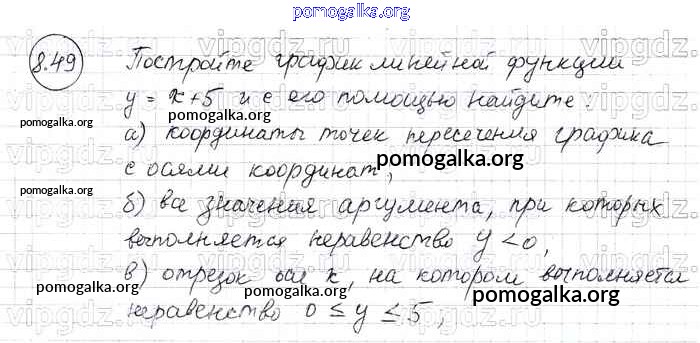 pomogalka.org
8.49 Постройте график линейной функции
y = x+5 и с его помощью найдите:
pomogalka.org
а) координаты точек пересечения графика
с осями координат,
pomogalka.org
pomogalka.org
б) все значения аргумента, при которых
выполняется неравенство y < 0,
pomogalka.org
в) отрезок оси x, на котором выполняется
pomogalka.org
pomogalka.org
неравенство 0 ≤ y ≤ 5,